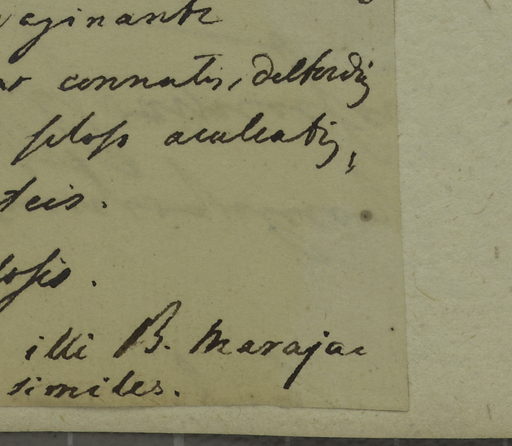 vaginante
connatis, deltoidis
setoso aculeatis,
teis.
losis.
illi B. Marajae
similes.